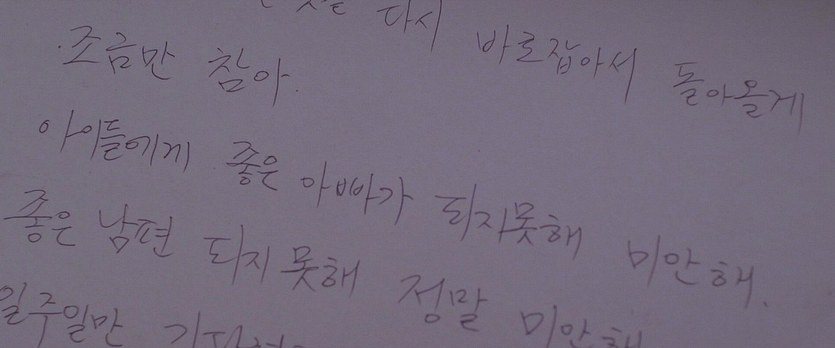 다시 바로잡아서 돌아올게
조금만 참아.
아이들에게 좋은 아빠가 되지못해 미안해.
좋은 남편 되지 못해 정말 미안해
일주일만